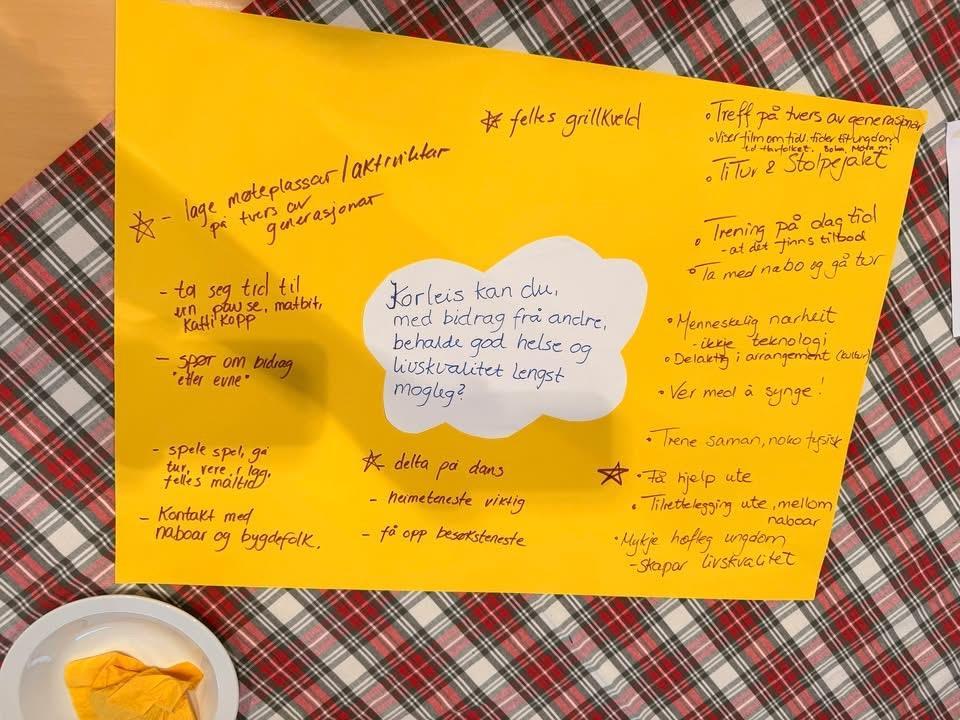 Korleis kan du,
med bidrag frå andre,
behalde god helse og
livskvalitet lengst
mogleg?
☆ felles grillkveld
☆ - lage møteplassar/aktivitetar
på tvers av
generasjonar
- ta seg tid til
ein pause, matbit,
Kaffi kopp
- spør om bidrag
"etter evne"
- spele spel, gå
tur, vere i lag,
felles måltid
- Kontakt med
naboar og bygdefolk.
☆ delta på dans
- heimeteneste viktig
- få opp besøksteneste
• Treff på tvers av generasjonar
• Viser film om tidl. tider til ungdom
• TiTur & Stolpejakt
• Trening på dag tid
- at det finns tilbod
• Ta med nabo og gå tur
• Menneskelig nærheit
- ikkje teknologi
• Delaktig i arrangement (kultur)
• Ver med å synge!
• Trene saman, noko fysisk
☆ • Få hjelp ute
• Tilrettelegging ute, mellom
naboar
• Mykje høfleg ungdom
- Skapar livskvalitet